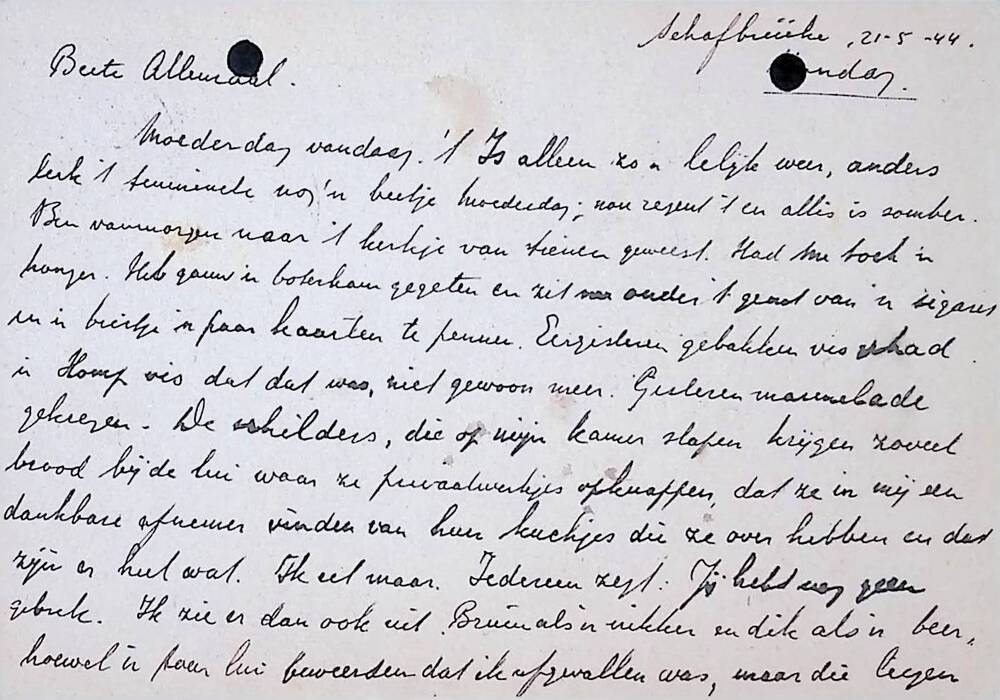 Schafbrücke, 21-5-44.
Beste Allemaal.
Zondag.
Moederdag vandaag. 't Is alleen zo'n lelijk weer, anders
leek 't tenminste nog 'n beetje Moederdag; nou regent 't en alles is somber.
Ben vanmorgen naar 't kerkje van tienen geweest. Had me toch 'n
honger. Heb gauw 'n boterham gegeten en zit onder 't genot van 'n sigaret
'n paar kaarten te pennen. Eergisteren gebakken vis gehad.
'n Homp vis dat dat was, niet gewoon meer. Gisteren marmelade
gekregen. De schilders, die op mijn kamer slapen krijgen zoveel
brood bij de lui waar ze privaatwerkjes opknappen, dat ze in mij een
dankbare afnemer vinden van hun kuchjes die ze over hebben en dat
zijn er heel wat. Ik eet maar. Iedereen zegt: Jij hebt nog geen
gebrek. Ik zie er dan ook uit. Bruin als 'n nikker en dik als 'n beer,
hoewel 'n paar lui beweerden dat ik afgevallen was, maar die liegen